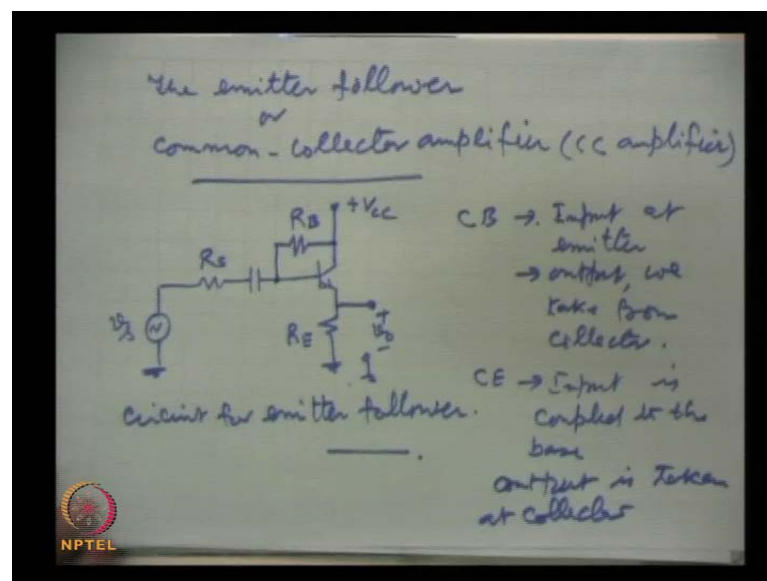 The emitter follower
or
common-collector amplifier (CC amplifier)
+VCC
RB
RS
vs
RE
+
vo
-
circuit for emitter follower.
CB → Input at
emitter
→ output, we
take from
collector.
CE → Input is
coupled to the
base
output is Taken
at collector
NPTEL